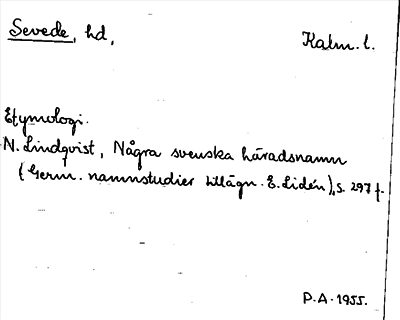 Sevede, hd,
Kalm. l.
Etymologi.
N. Lindqvist, Några svenska häradsnamn
(Germ. namnstudier tillägn. E. Lidén), s. 297 f.
P.A. 1955.